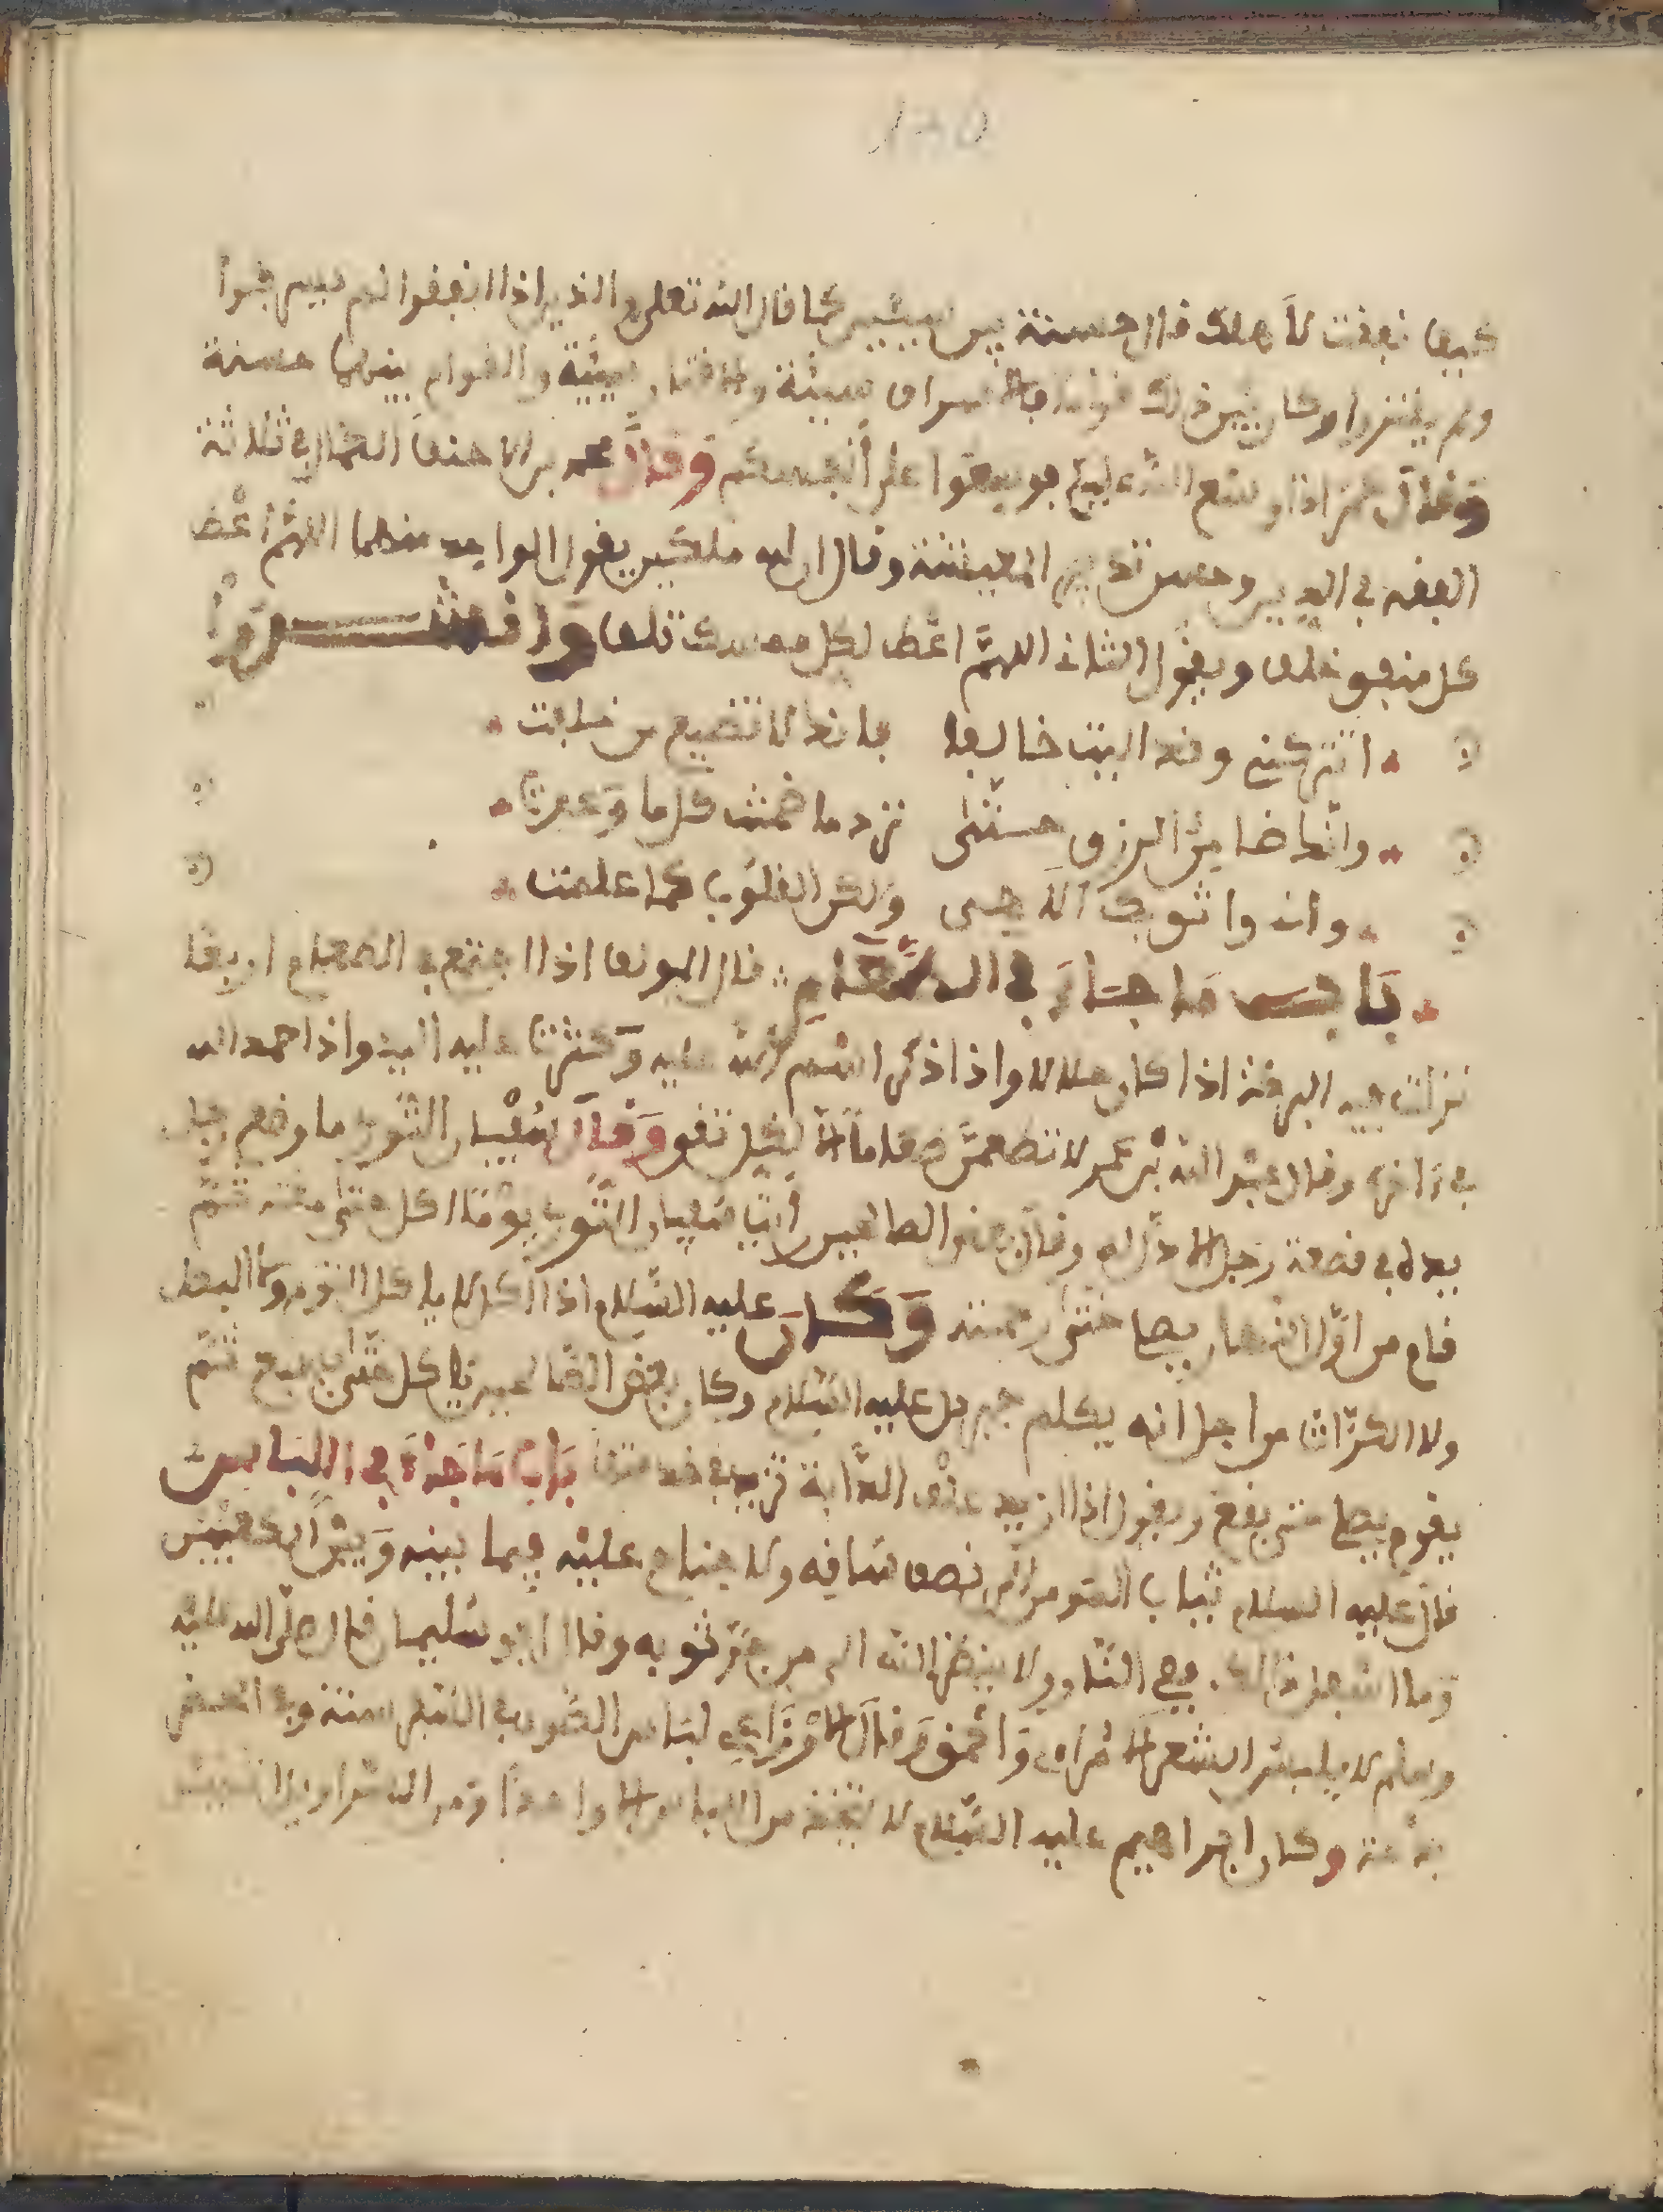 كيف نفقت لأهلك قال حسنة بين سيئتين كما قال الله تعلى والذين اذا انفقوا لم يسرفوا
ولم يقتروا وكان بين ذلك قواما فالاسراف سيئة والاقتار سيئة والقوام بينهما حسنة
وقال عمر اذا وسع الله عليكم فوسعوا على أنفسكم وقال محمد بن الاحنف الكمال في ثلاثة
الفقه في الدين وحسن تدبير المعيشة وقال ان لله ملكين يقول الواحد منهما اللهم اعط
كل منفق خلفا ويقول الثاني اللهم اعط لكل ممسك تلفا وانشدوا
اتتركني وقد البت خالفا بانك لا تضيع من خلقت
وانك ضامن الرزق حتى تزد ما ضمنت كل ما وعدت
وان واثق بك الاهي ولكن القلوب كما علمت
باب ما جاء في الطعام قال المؤلف اذا اجتمع في الطعام اربعا
نزلت فيه البركة اذا كان حلالا واذا ذكر اسم الله عليه وكثرت عليه اليد واذا حمد الله
في ءاخره وقال عبد الله بن عمر لا تطعمن طعامك الا لكل تقي وقال سفيان الثوري ما وضع رجل
يده في قصعة رجل الا ذل له وقال بعض الصالحين رأيت سفيان الثوري يوما اكل حتى
قام من اول الليل يصلي حتى رحمته وكان عليه السلام اذا اكل لا ياكل الثوم ولا البصل
ولا الكراث من اجل انه يكلم جبريل عليه السلام وكان بعض الصالحين ياكل حتى يشبع ثم
يقوم يصلي حتى يصبح ويقول اذا ازيد علف الدابة تزيد في خدمتها باب ما جاء في اللباس
قال عليه السلام ثياب المؤمن الى نصف ساقه ولا جناح عليه فيما بينه وبين الكعبين
وما اسفل ذالك ففي النار ولا ينظر الله الى من جر ثوبه وقال ابو سليمان قال صلى الله عليه
وسلم لا يلبس الشعر الا مراء واحمق وقال الاوزاعي لباس الصوف في السفر سنة وفي الحضر
بدعة وكان ابراهيم عليه السلام لا يتخذ من اللباس الا واحدا